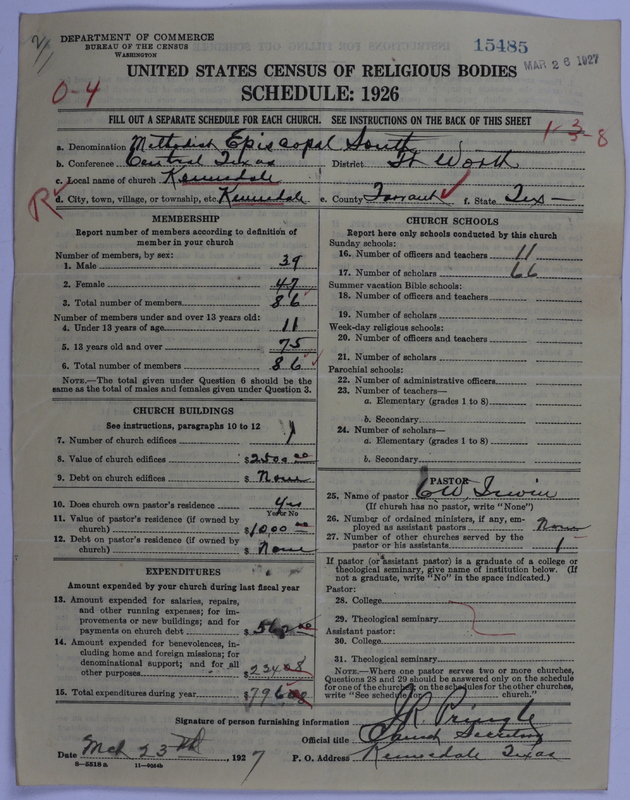 DEPARTMENT OF COMMERCE
BUREAU OF THE CENSUS
WASHINGTON
15485
MAR 26 1927
UNITED STATES CENSUS OF RELIGIOUS BODIES
SCHEDULE: 1926
0-4
FILL OUT A SEPARATE SCHEDULE FOR EACH CHURCH. SEE INSTRUCTIONS ON THE BACK OF THIS SHEET
a. Denomination Methodist Episcopal South
b. Conference Central Texas District Ft Worth
c. Local name of church Kennedale
R
d. City, town, village, or township, etc. Kennedale e. County Tarrant f. State Tex
MEMBERSHIP
Report number of members according to definition of
member in your church
Number of members, by sex:
1. Male 39
2. Female 47
3. Total number of members 86
Number of members under and over 13 years old:
4. Under 13 years of age 11
5. 13 years old and over 75
6. Total number of members 86
NOTE.—The total given under Question 6 should be the
same as the total of males and females given under Question 3.
CHURCH BUILDINGS
See instructions, paragraphs 10 to 12
7. Number of church edifices 1
8. Value of church edifices $2500 00
9. Debt on church edifices $ None
10. Does church own pastor's residence Yes
Yes or No
11. Value of pastor's residence (if owned by
church) $1000 00
12. Debt on pastor's residence (if owned by
church) $ None
EXPENDITURES
Amount expended by your church during last fiscal year
13. Amount expended for salaries, repairs,
and other running expenses; for im-
provements or new buildings; and for
payments on church debt $ 562 00
14. Amount expended for benevolences, in-
cluding home and foreign missions; for
denominational support; and for all
other purposes $ 234 08
15. Total expenditures during year $ 796
CHURCH SCHOOLS
Report here only schools conducted by this church
Sunday schools:
16. Number of officers and teachers 11
17. Number of scholars 66
Summer vacation Bible schools:
18. Number of officers and teachers
19. Number of scholars
Week-day religious schools:
20. Number of officers and teachers
21. Number of scholars
Parochial schools:
22. Number of administrative officers
23. Number of teachers—
a. Elementary (grades 1 to 8)
b. Secondary
24. Number of scholars—
a. Elementary (grades 1 to 8)
b. Secondary
PASTOR
25. Name of pastor CW Irwin
(If church has no pastor, write "None")
26. Number of ordained ministers, if any, em-
ployed as assistant pastors None
27. Number of other churches served by the
pastor or his assistants 1
If pastor (or assistant pastor) is a graduate of a college or
theological seminary, give name of institution below. (If
not a graduate, write "No" in the space indicated.)
Pastor:
28. College
29. Theological seminary
Assistant pastor:
30. College
31. Theological seminary
NOTE.—Where one pastor serves two or more churches,
Questions 28 and 29 should be answered only on the schedule
for one of the churches; on the schedules for the other churches,
write "See schedule for church."
Signature of person furnishing information J R Pringle
Official title Church Secretary
Date Mch 23rd, 1927 P. O. Address Kennedale Texas
8-5518 a 11-9264b